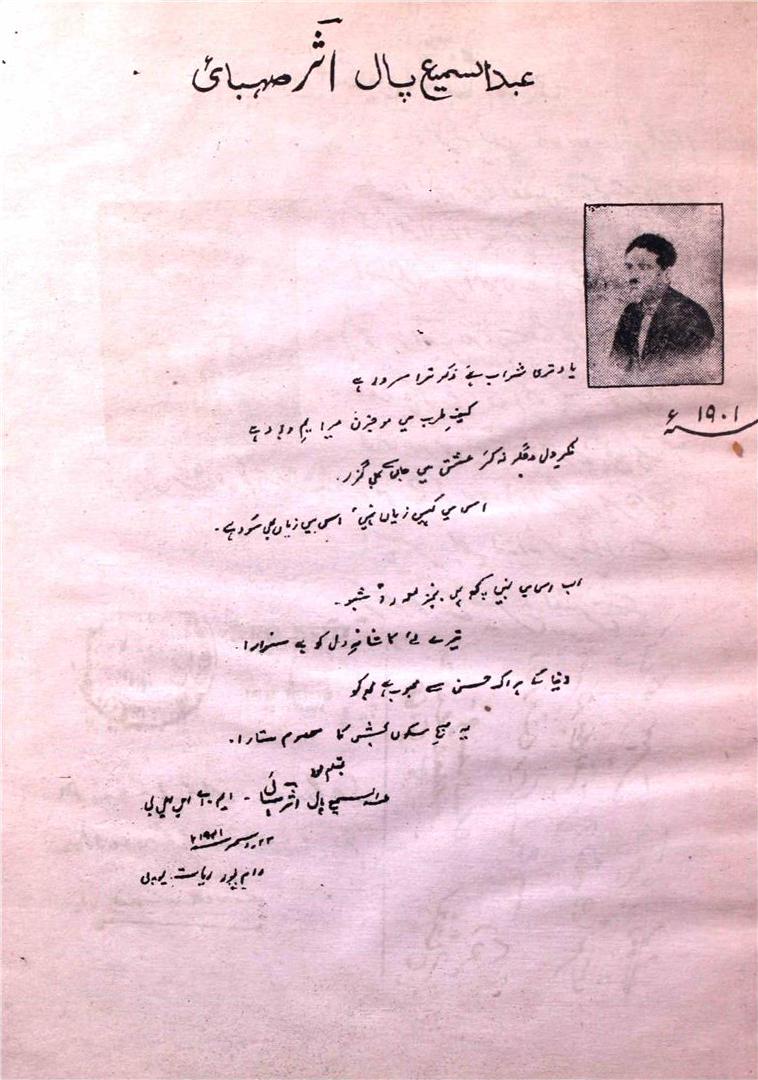 عبدالسمیع پال آثر صہبائی
یاد تری شراب ہے ذکر ترا سرود ہے
کیفِ طرب میں موجزن میرا یمِ وجود ہے
فکرِ دل و جگر نہ کر عشق میں جاں سے بھی گزر۔
اس میں کہیں زیاں نہیں اس میں زیاں بھی سود ہے۔
اب اس میں نہیں کچھ بھی بجز
تیرے لئے کاشانۂ دل کو ہے سنوارا۔
دنیا کے ہر اک حسن سے محبوب ہے مجھ کو
یہ صبحِ سکوں بخش کا معصوم ستارا۔
۱۹۰۱ء
بقلم خود
عبدالسمیع پال آثر صہبائی - ایم اے ایل ایل بی
۲۳ دسمبر ۱۹۴۱ء
رام پور ریاست یو پی